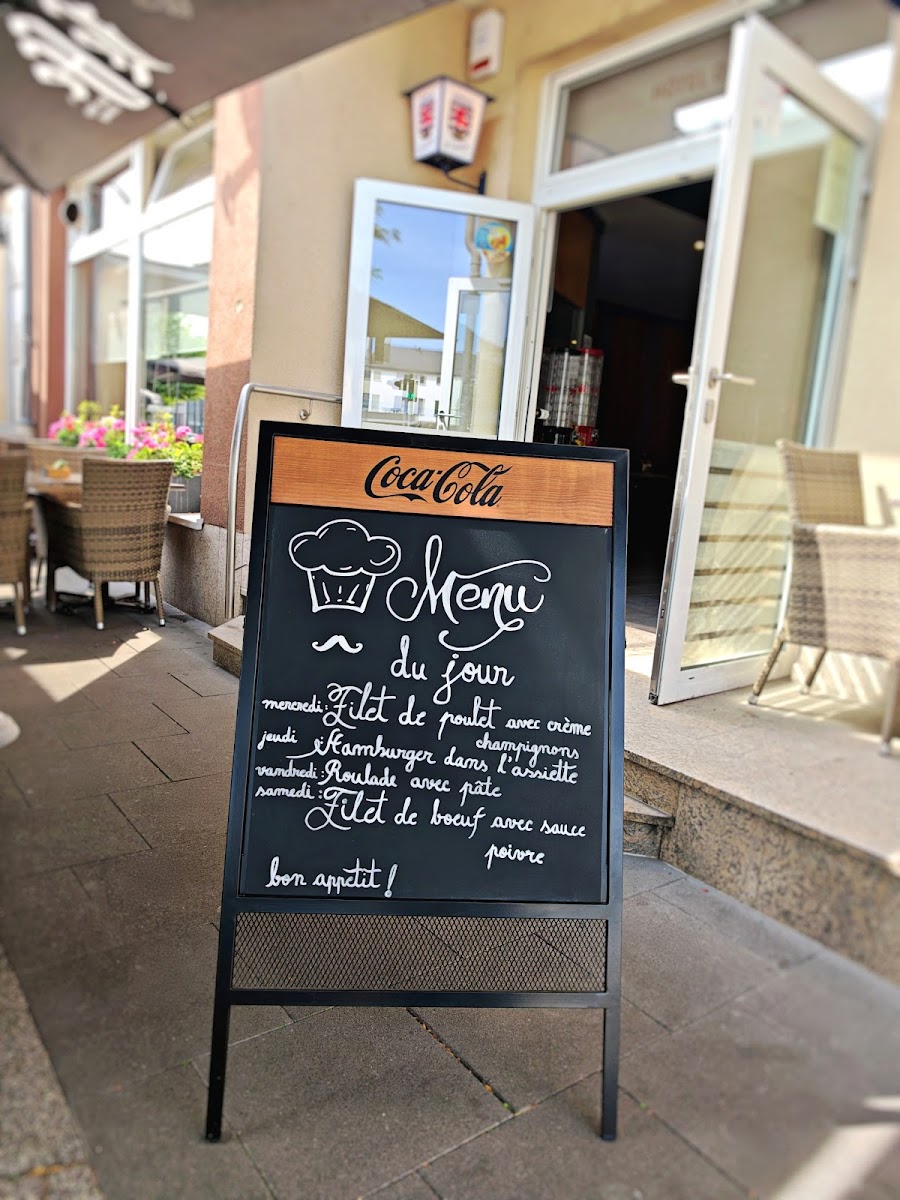 HOTEL
Coca-Cola
Menu
du jour
mercredi: Filet de poulet avec crème
champignons
jeudi Hamburger dans l'assiette
vandredi: Roulade avec pâte
samedi: Filet de boeuf avec sauce
poivre
bon appétit!